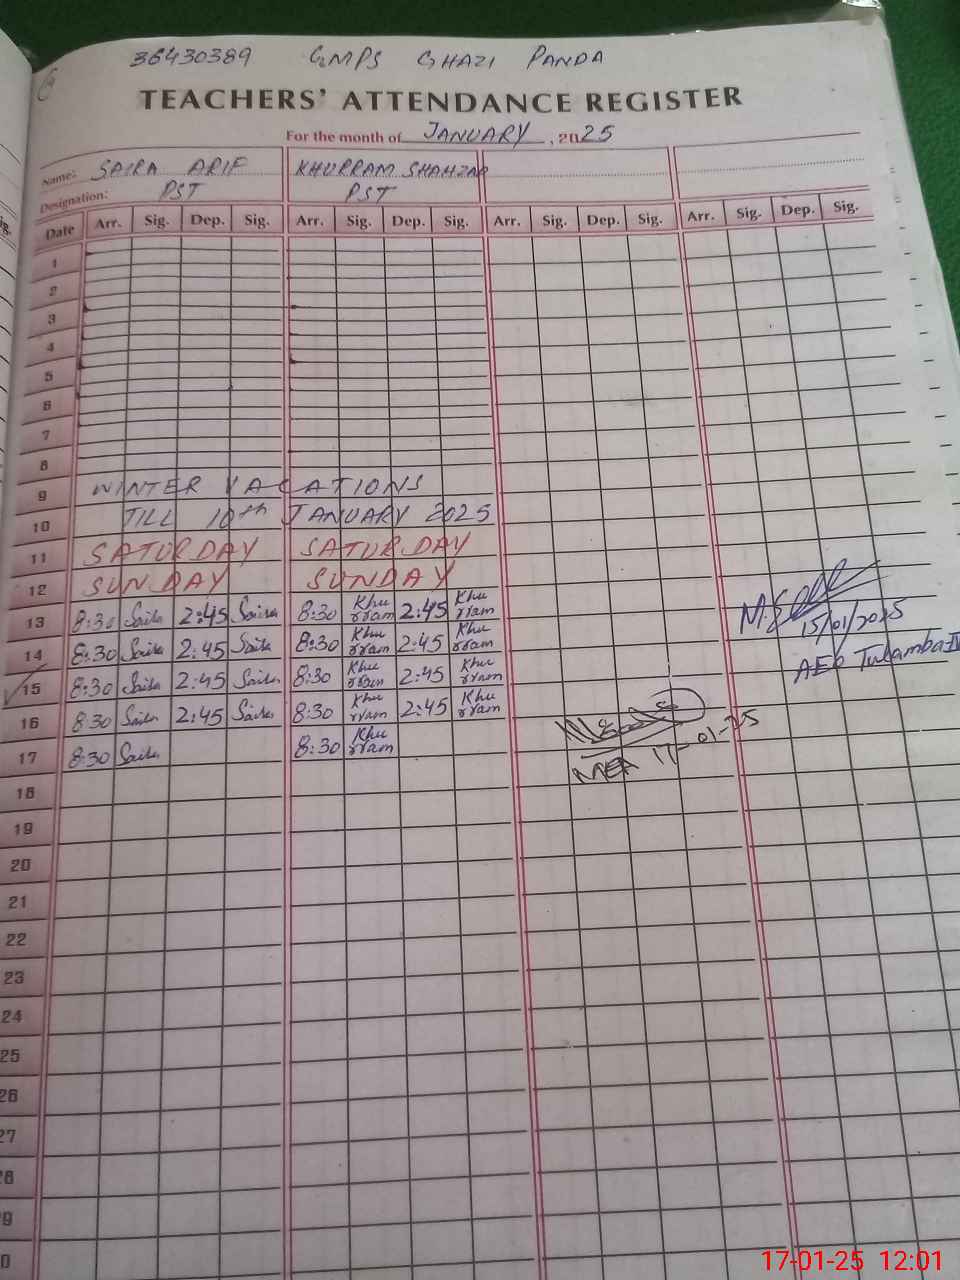 36430389 GMPS GHAZI PANDA
TEACHERS' ATTENDANCE REGISTER
For the month of JANUARY, 2025
Name: SAIRA ARIF KHURRAM SHAHZAD
Designation: PST PST
Date Arr. Sig. Dep. Sig. Arr. Sig. Dep. Sig. Arr. Sig. Dep. Sig. Arr. Sig. Dep. Sig.
1
2
3
4
5
6
7
8
9 WINTER VACATIONS
10 TILL 10th JANUARY 2025
11 SATURDAY SATURDAY
12 SUNDAY SUNDAY
13 8:30 Saira 2:45 Saira 8:30 Khurram 2:45 Khurram
15/01/2025
14 8:30 Saira 2:45 Saira 8:30 Khurram 2:45 Khurram
AEO Tulamba
15 8:30 Saira 2:45 Saira 8:30 Khurram 2:45 Khurram
16 8:30 Saira 2:45 Saira 8:30 Khurram 2:45 Khurram
17 8:30 Saira 8:30 Khurram
MEA 17-01-25
18
19
20
21
22
23
24
25
26
27
28
29
17-01-25 12:01